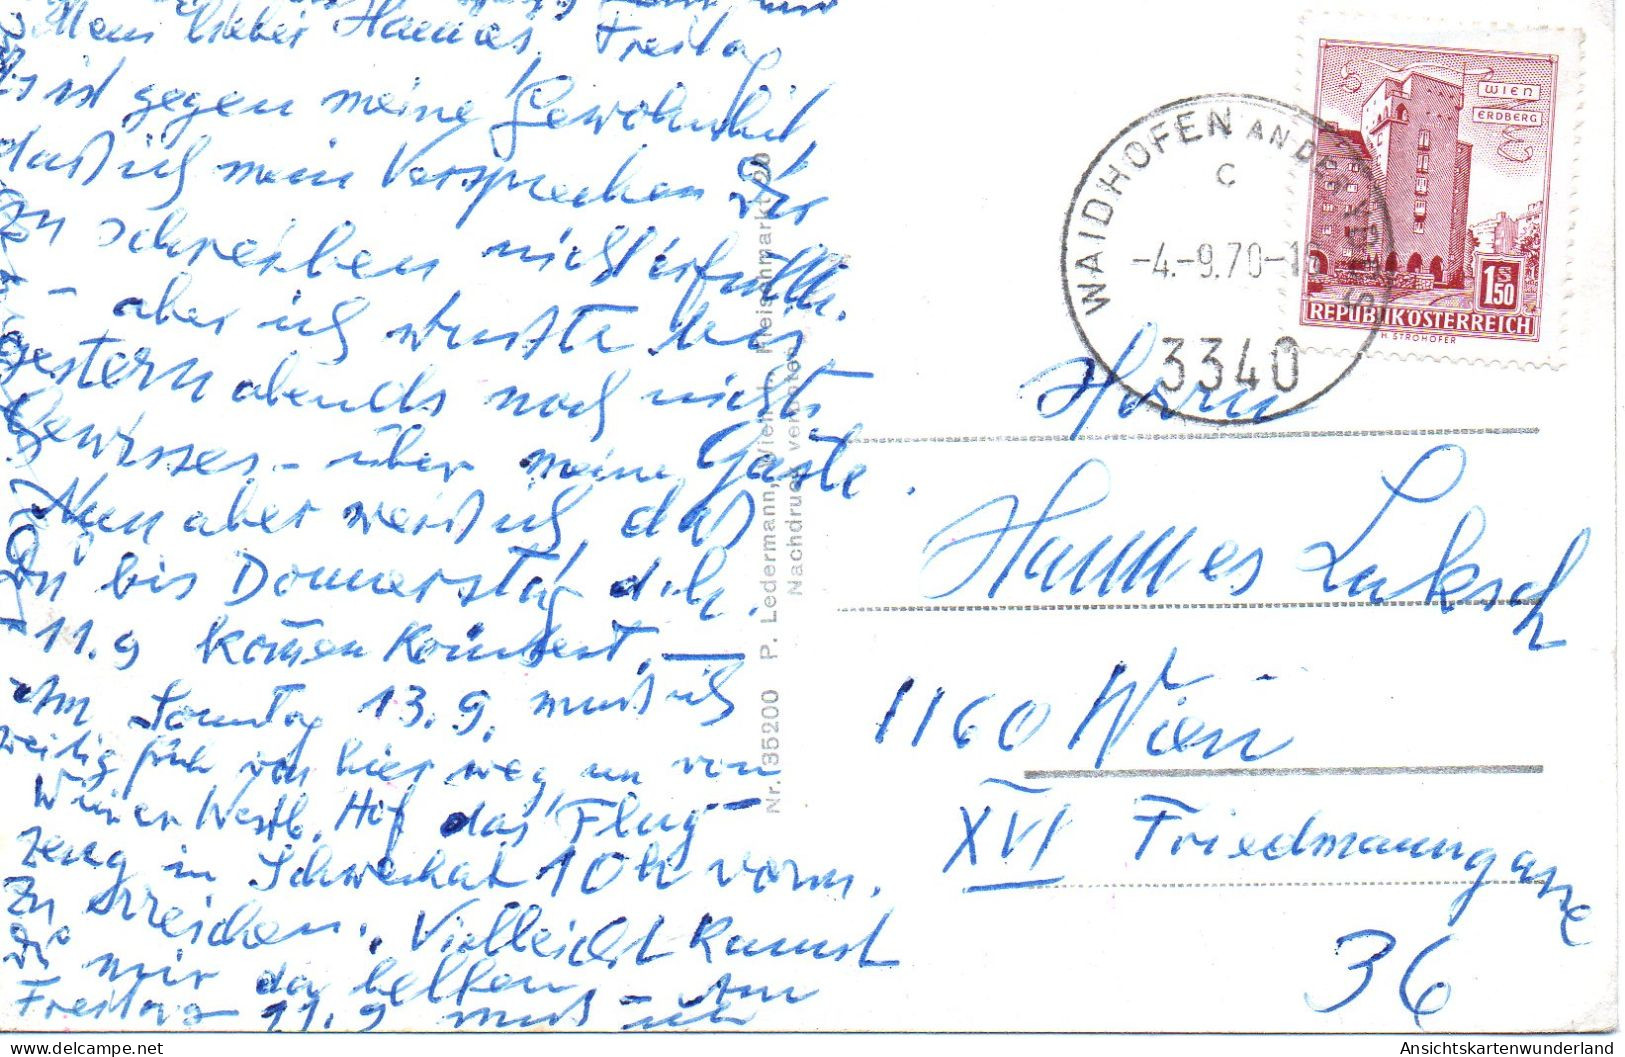 Mein lieber Hannes, Freitag
Es ist gegen meine Gewohnheit
dass ich mein Versprechen Dir
zu schreiben nicht erfülle.
- aber ich wusste bis
gestern abends noch nichts
Gewisses - über meine Gäste.
Nun aber weiss ich, dass
Du bis Donnerstag d.h.
11.9 kom̄en kön̄test. —
Am Sonntag 13.9. muss ich
zeitig früh von hier weg, um von
Wiener Westb. Hof das Flug-
zeug in Schwechat 10h vorm.
zu erreichen. Vielleicht kannst
Du mir da helfen. Am
Freitag 11.9 muss ich
Nr. 35200 P. Ledermann, Wien I, Fleischmarkt 20
Nachdruck verboten
WAIDHOFEN AN DER YBBS
C
-4.-9.70-1
3340
WIEN
ERDBERG
1 S 50
REPUBLIK ÖSTERREICH
H. STROHOFER
Herrn
Hannes Luksch
1160 Wien
XVI Friedmanngasse
36
Ansichtskartenwunderland